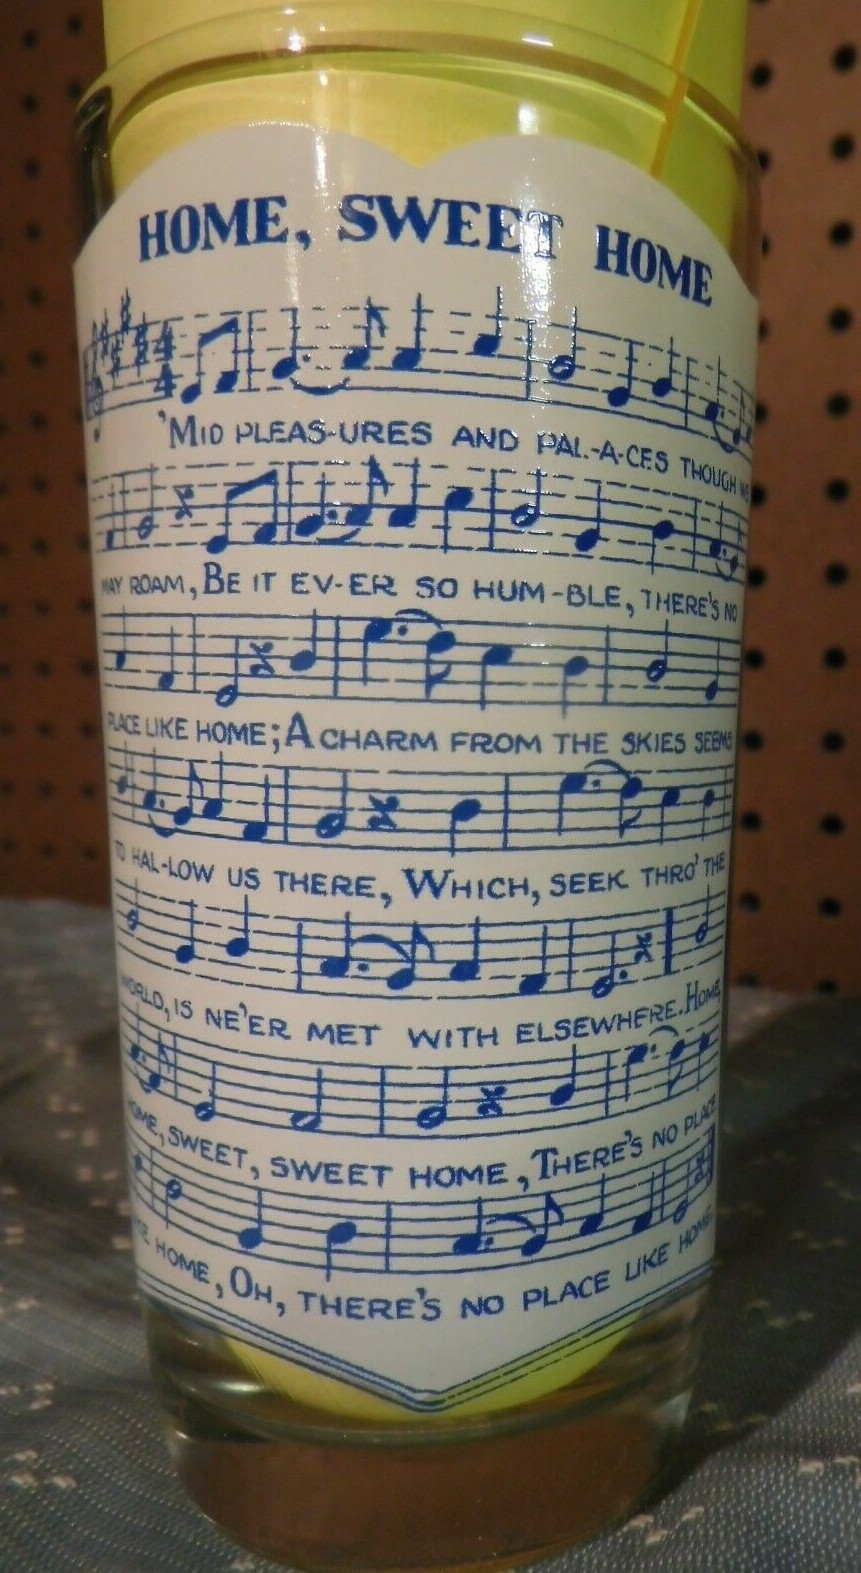 HOME, SWEET HOME
4
4
'MID PLEAS-URES AND PAL-A-CES THOUGH WE
MAY ROAM, BE IT EV-ER SO HUM-BLE, THERE'S NO
PLACE LIKE HOME; A CHARM FROM THE SKIES SEEMS
TO HAL-LOW US THERE, WHICH, SEEK THRO' THE
WORLD, IS NE'ER MET WITH ELSEWHERE. HOME,
HOME, SWEET, SWEET HOME, THERE'S NO PLACE
LIKE HOME, OH, THERE'S NO PLACE LIKE HOME.